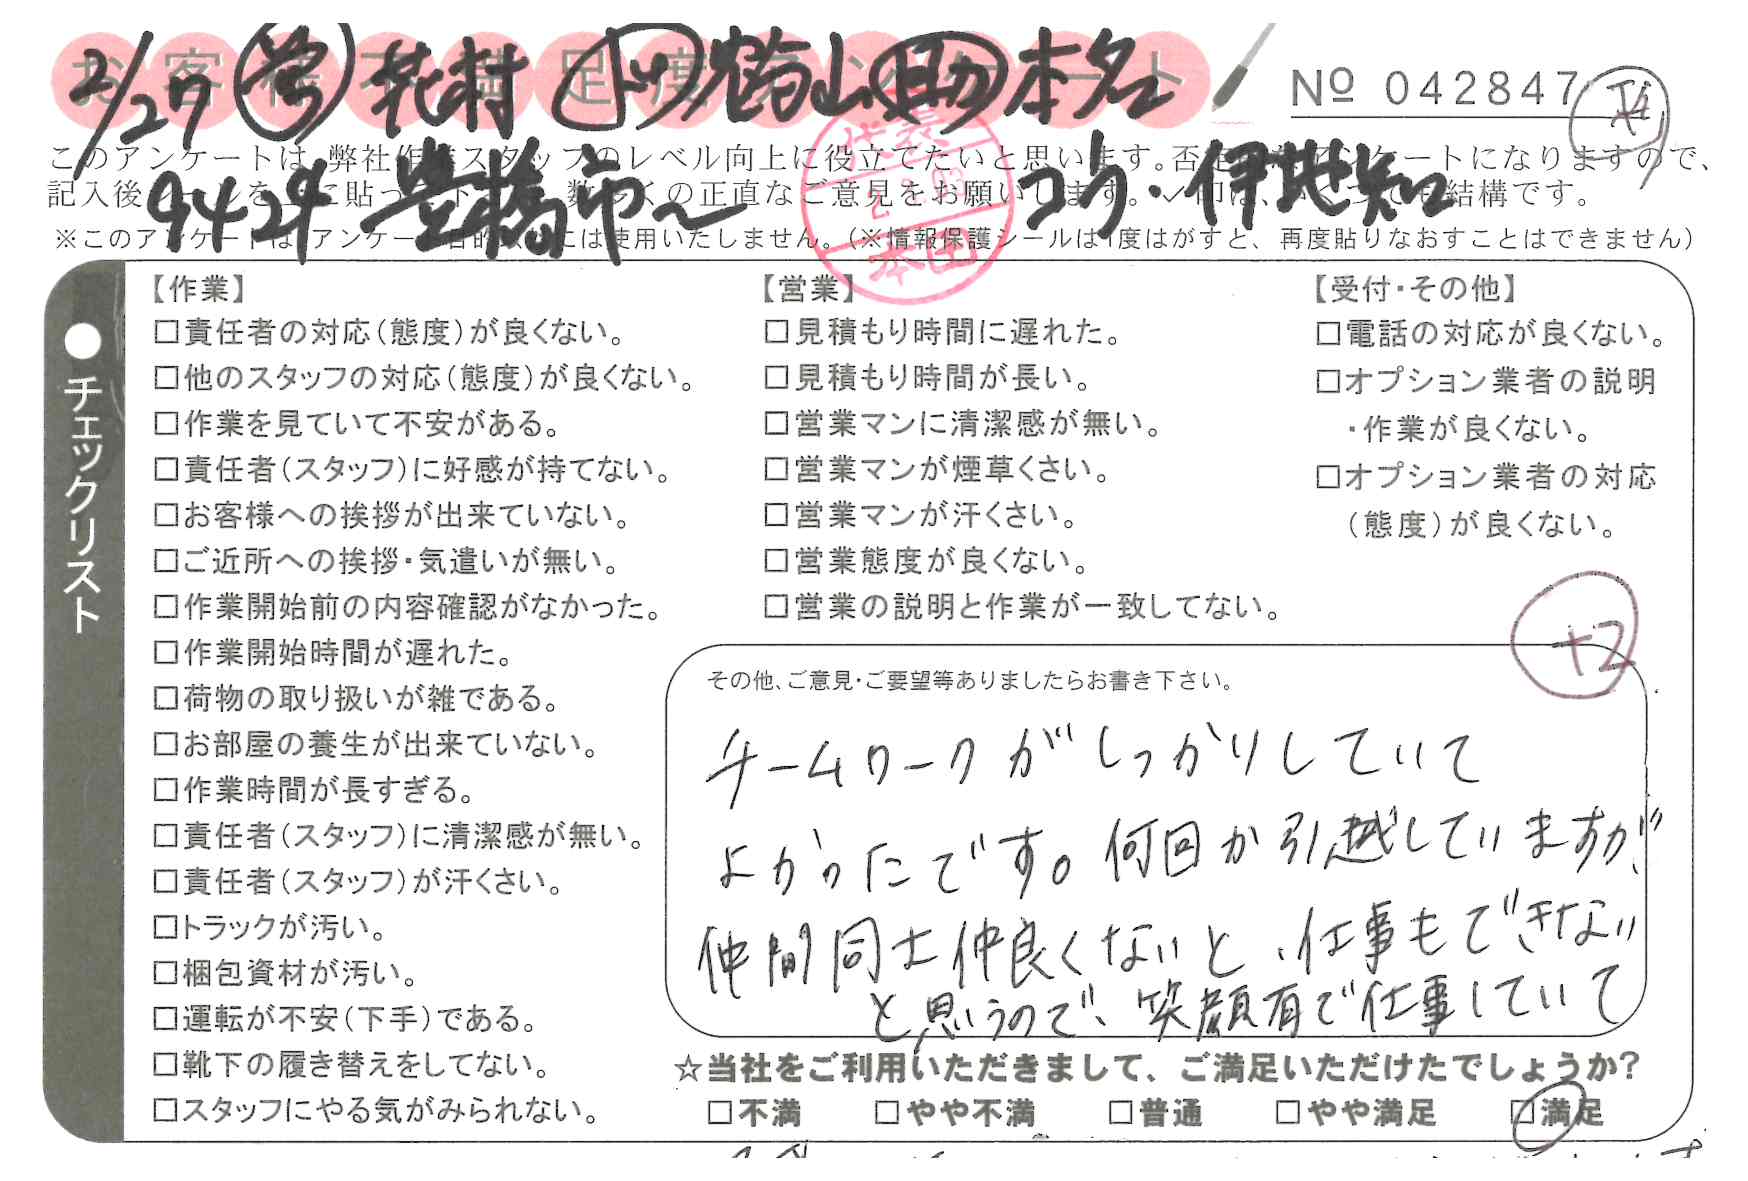 お客様不満足度アンケート
No 042847
2/27 営 花村 トツ 鶴山 助 本名
このアンケートは、弊社作業スタッフのレベル向上に役立てたいと思います。否定的なアンケートになりますので、
記入後シールを上に貼って下さい。数多くの正直なご意見をお願いします。✓印は、いくつでも結構です。
9424 豊橋市〜 コウ・伊地知
※このアンケートは、アンケート目的以外には使用いたしません。(※情報保護シールは1度はがすと、再度貼りなおすことはできません)
代表
本田
●チェックリスト
【作業】
□責任者の対応(態度)が良くない。
□他のスタッフの対応(態度)が良くない。
□作業を見ていて不安がある。
□責任者(スタッフ)に好感が持てない。
□お客様への挨拶が出来ていない。
□ご近所への挨拶・気遣いが無い。
□作業開始前の内容確認がなかった。
□作業開始時間が遅れた。
□荷物の取り扱いが雑である。
□お部屋の養生が出来ていない。
□作業時間が長すぎる。
□責任者(スタッフ)に清潔感が無い。
□責任者(スタッフ)が汗くさい。
□トラックが汚い。
□梱包資材が汚い。
□運転が不安(下手)である。
□靴下の履き替えをしてない。
□スタッフにやる気がみられない。
【営業】
□見積もり時間に遅れた。
□見積もり時間が長い。
□営業マンに清潔感が無い。
□営業マンが煙草くさい。
□営業マンが汗くさい。
□営業態度が良くない。
□営業の説明と作業が一致してない。
【受付・その他】
□電話の対応が良くない。
□オプション業者の説明
・作業が良くない。
□オプション業者の対応
(態度)が良くない。
+2
その他、ご意見・ご要望等ありましたらお書き下さい。
チームワークがしっかりしていて
よかったです。何回か引越していますが、
仲間同士仲良くないと、仕事もできない
と思うので、笑顔有で仕事していて
☆当社をご利用いただきまして、ご満足いただけたでしょうか?
□不満 □やや不満 □普通 □やや満足 □満足